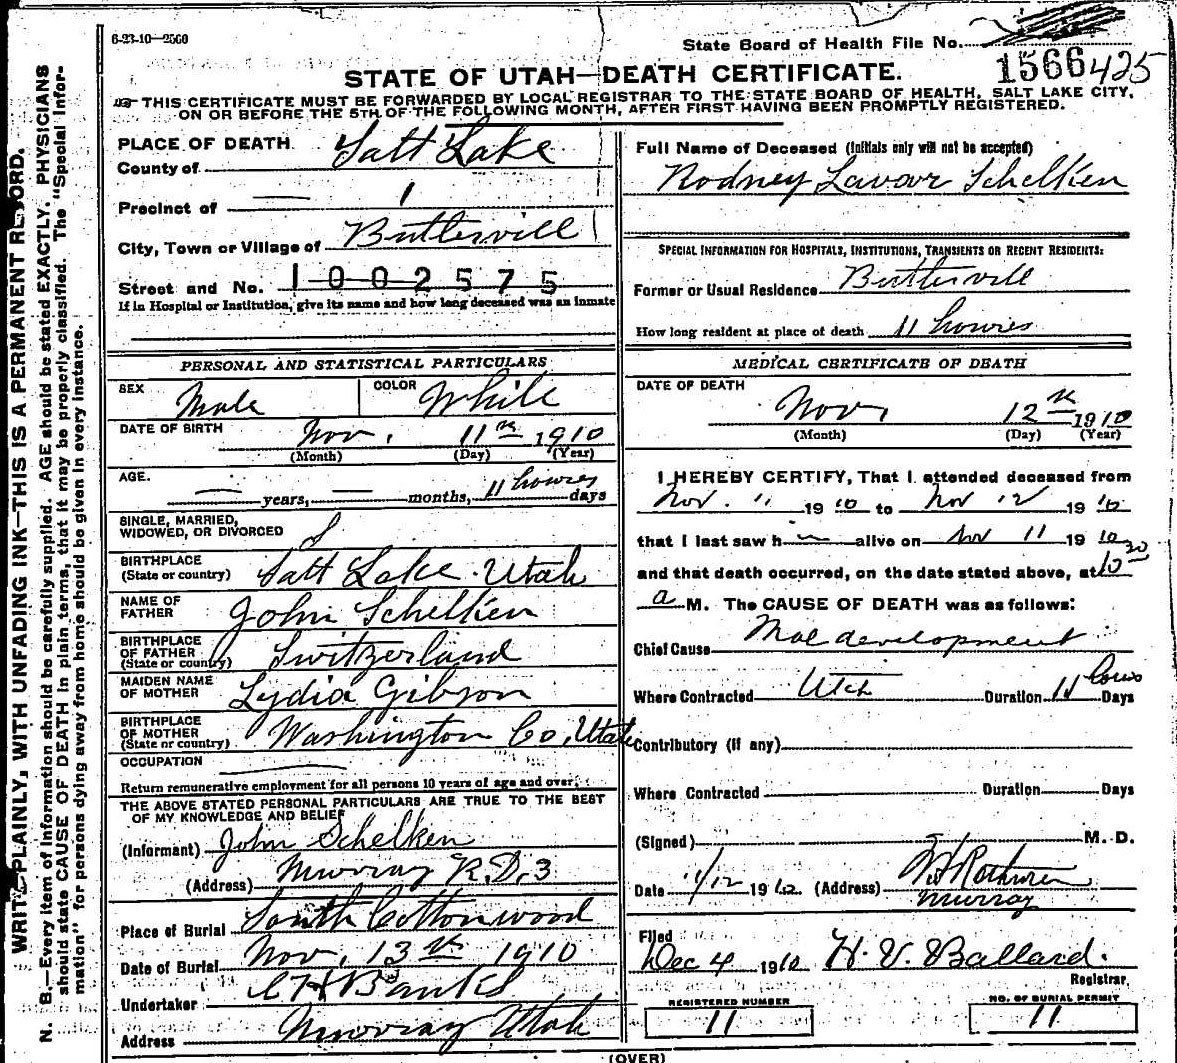 6-23-10-2500
State Board of Health File No.
1566 425
STATE OF UTAH—DEATH CERTIFICATE.
THIS CERTIFICATE MUST BE FORWARDED BY LOCAL REGISTRAR TO THE STATE BOARD OF HEALTH, SALT LAKE CITY,
ON OR BEFORE THE 5TH OF THE FOLLOWING MONTH, AFTER FIRST HAVING BEEN PROMPTLY REGISTERED.
PLACE OF DEATH.
County of Salt Lake
Precinct of 1
City, Town or Village of Butlerville
Street and No. 1002575
If in Hospital or Institution, give its name and how long deceased was an inmate
PERSONAL AND STATISTICAL PARTICULARS
SEX Male COLOR White
DATE OF BIRTH Nov. 11th 1910
(Month) (Day) (Year)
AGE. — years, — months, 11 howres days
SINGLE, MARRIED,
WIDOWED, OR DIVORCED S
BIRTHPLACE
(State or country) Salt Lake. Utah
NAME OF
FATHER John Schelken
BIRTHPLACE
OF FATHER
(State or country) Switzerland
MAIDEN NAME
OF MOTHER Lydia Gibson
BIRTHPLACE
OF MOTHER
(State or country) Washington Co, Utah
OCCUPATION —
Return remunerative employment for all persons 10 years of age and over.
THE ABOVE STATED PERSONAL PARTICULARS ARE TRUE TO THE BEST
OF MY KNOWLEDGE AND BELIEF
(Informant) John Schelken
(Address) Murray R.D. 3
Place of Burial South Cottonwood
Date of Burial Nov. 13th 1910
Undertaker Banks
Address Murray Utah
Full Name of Deceased (Initials only will not be accepted)
Rodney Lavour Schelken
SPECIAL INFORMATION FOR HOSPITALS, INSTITUTIONS, TRANSIENTS OR RECENT RESIDENTS:
Former or Usual Residence Butlerville
How long resident at place of death 11 howres
MEDICAL CERTIFICATE OF DEATH
DATE OF DEATH
Nov, 12th 1910
(Month) (Day) (Year)
I HEREBY CERTIFY, That I attended deceased from
Nov. 11 1910 to Nov 12 1910
that I last saw h alive on Nov 11 1910
and that death occurred, on the date stated above, at 10 30
a M. The CAUSE OF DEATH was as follows:
Chief Cause Mal development
Where Contracted Utah Duration 11 hours Days
Contributory (if any)
Where Contracted Duration Days
(Signed) M. D.
Date 11/12 1910 (Address) Murray
Filed
Dec 4 1910 H. V. Ballard.
Registrar.
REGISTERED NUMBER
11
NO. OF BURIAL PERMIT
11
(OVER)
WRITE PLAINLY, WITH UNFADING INK—THIS IS A PERMANENT RECORD.
N. B.—Every item of information should be carefully supplied. AGE should be stated EXACTLY. PHYSICIANS
should state CAUSE OF DEATH in plain terms, that it may be properly classified. The "Special Infor-
mation" for persons dying away from home should be given in every instance.